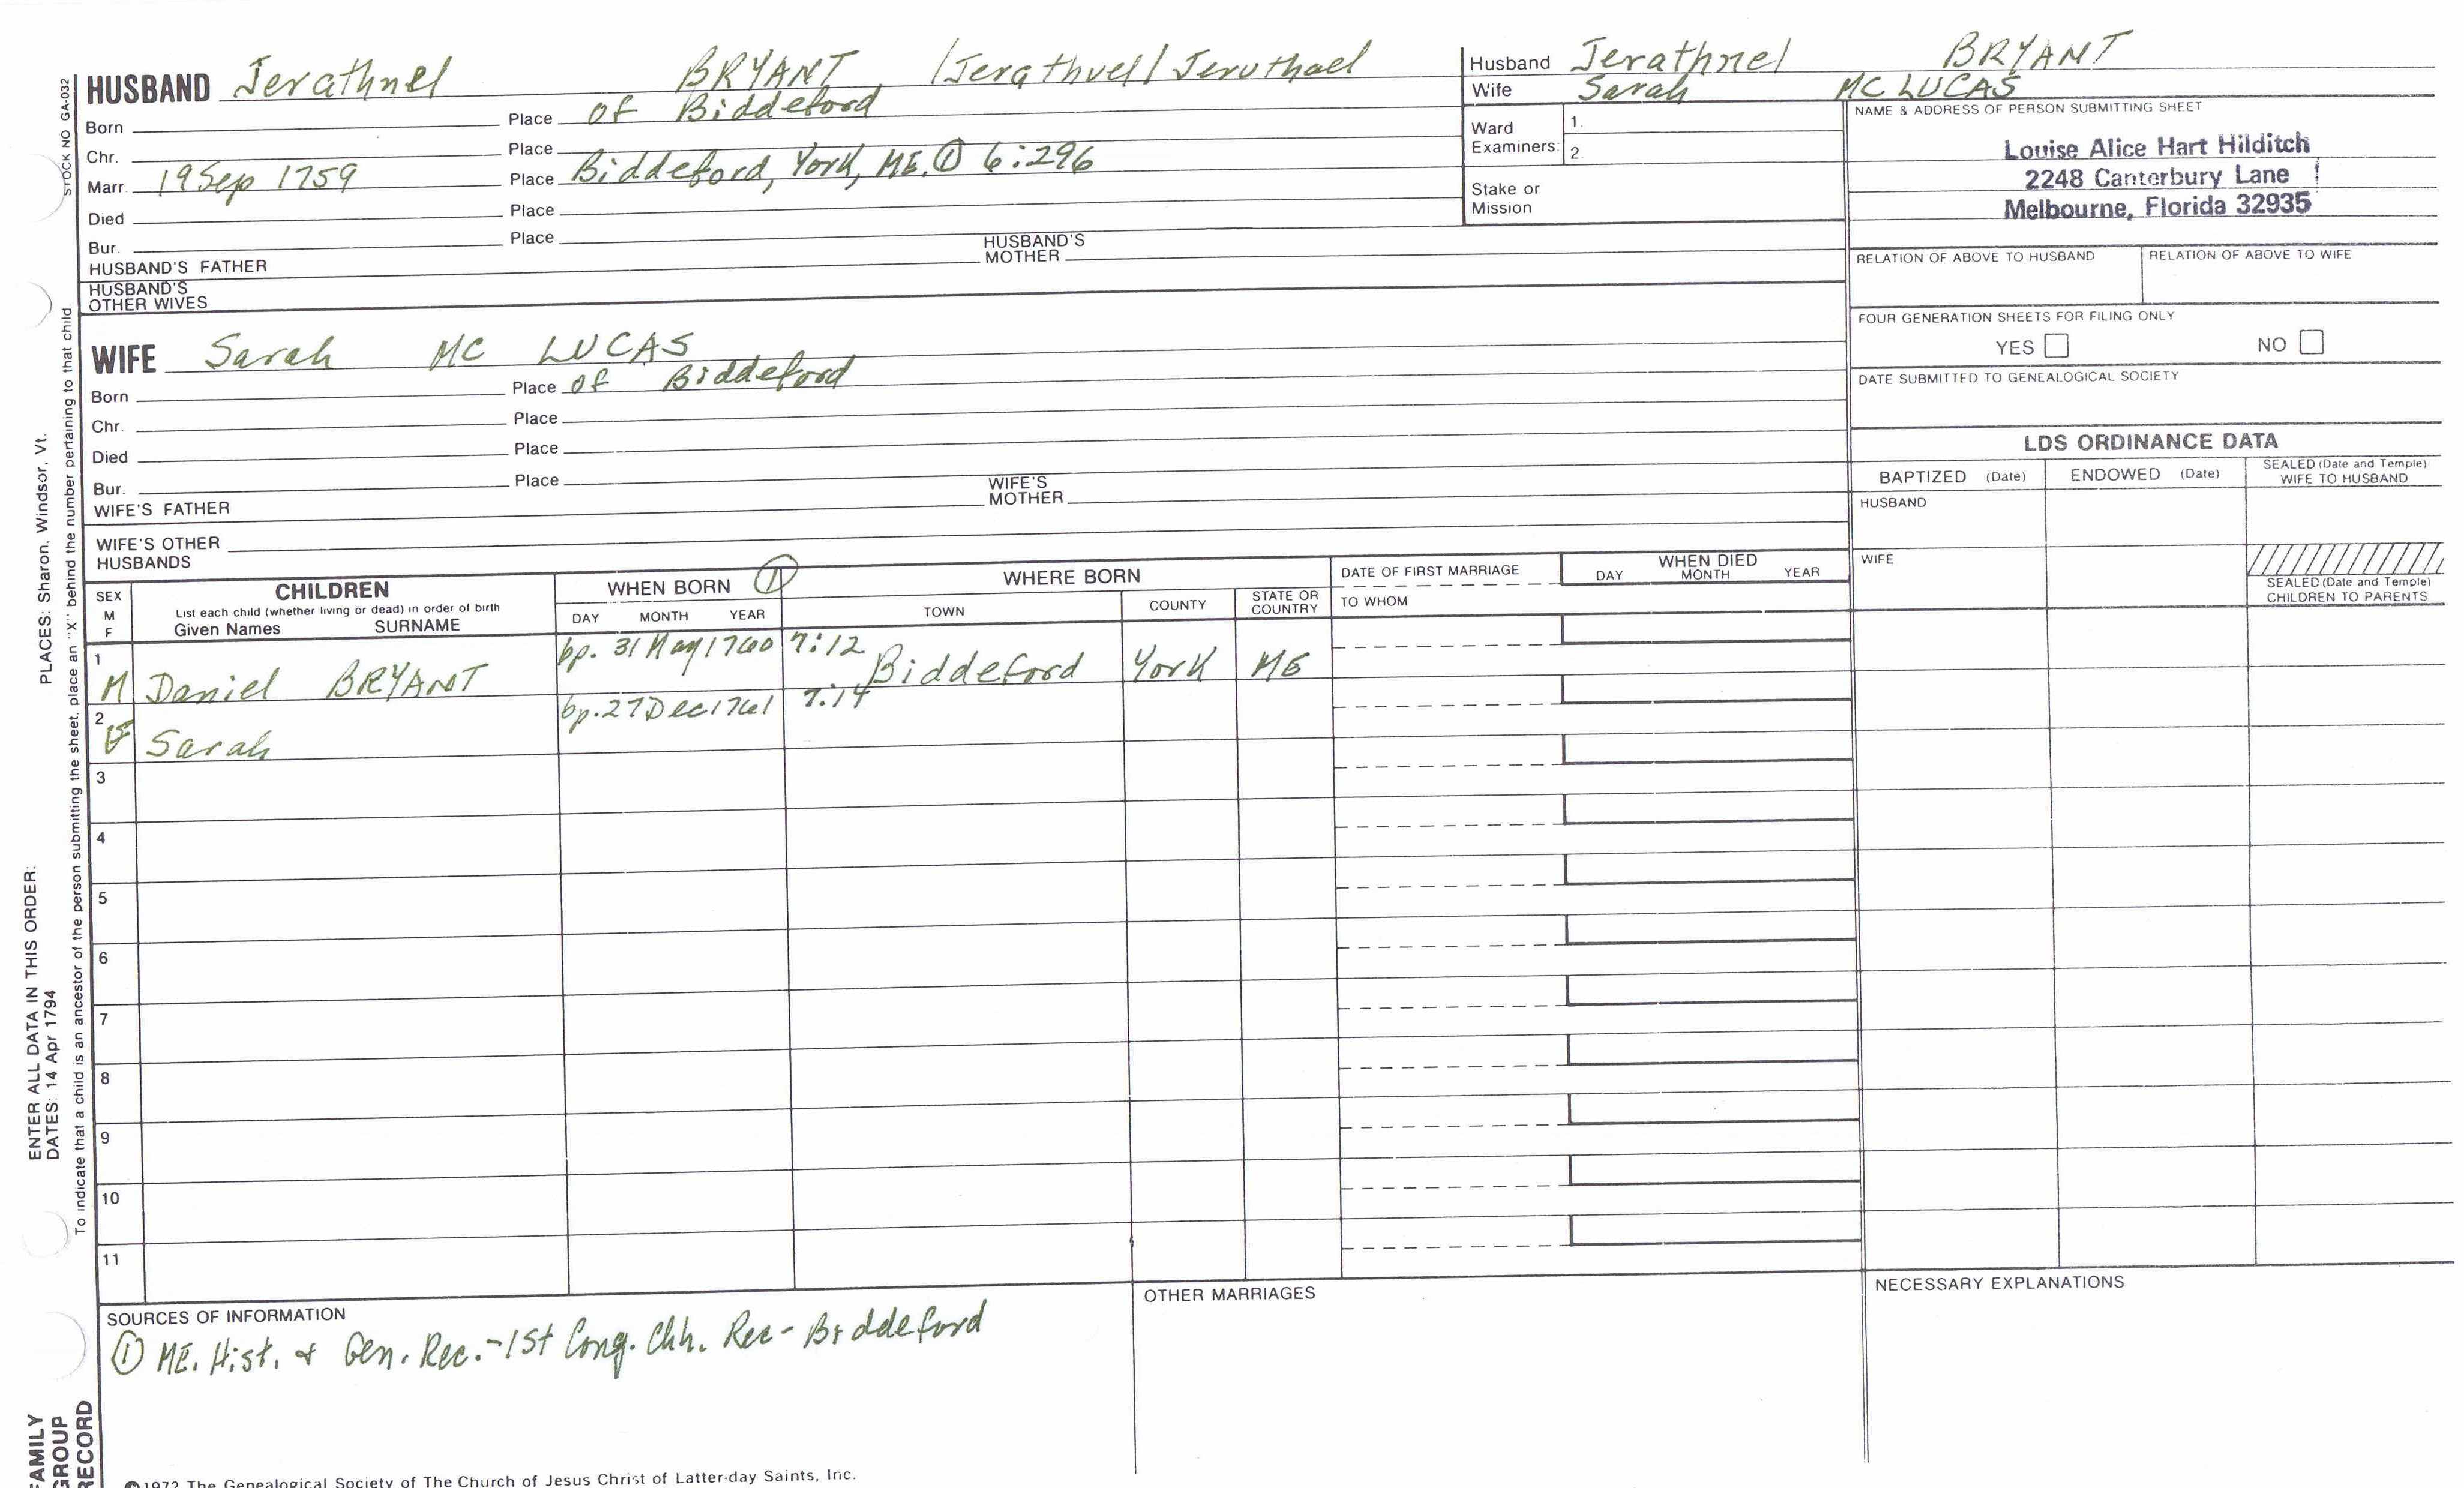 HUSBAND Jerathnel BRYANT /Jerathuel/Jeruthael
Born Place of Biddeford
Chr. Place
Marr. 19 Sep 1759 Place Biddeford, York, ME. ① 6:296
Died Place
Bur. Place
HUSBAND'S FATHER HUSBAND'S MOTHER
HUSBAND'S OTHER WIVES
WIFE Sarah MC LUCAS
Born Place of Biddeford
Chr. Place
Died Place
Bur. Place
WIFE'S FATHER WIFE'S MOTHER
WIFE'S OTHER HUSBANDS
Husband Jerathnel BRYANT
Wife Sarah MC LUCAS
Ward Examiners: 1.
2.
Stake or Mission
NAME & ADDRESS OF PERSON SUBMITTING SHEET
Louise Alice Hart Hilditch
2248 Canterbury Lane
Melbourne, Florida 32935
RELATION OF ABOVE TO HUSBAND RELATION OF ABOVE TO WIFE
FOUR GENERATION SHEETS FOR FILING ONLY
YES NO
DATE SUBMITTED TO GENEALOGICAL SOCIETY
LDS ORDINANCE DATA
BAPTIZED (Date) ENDOWED (Date) SEALED (Date and Temple) WIFE TO HUSBAND
HUSBAND
WIFE
SEALED (Date and Temple) CHILDREN TO PARENTS
SEX M F
CHILDREN
List each child (whether living or dead) in order of birth
Given Names SURNAME
WHEN BORN ①
DAY MONTH YEAR
WHERE BORN
TOWN COUNTY STATE OR COUNTRY
DATE OF FIRST MARRIAGE
TO WHOM
WHEN DIED
DAY MONTH YEAR
1 M Daniel BRYANT bp. 31 May 1760 7:12 Biddeford York ME
2 F Sarah bp. 27 Dec 1761 7:14
3
4
5
6
7
8
9
10
11
SOURCES OF INFORMATION
① ME. Hist. & Gen. Rec. - 1st Cong. Chh. Rec - Biddeford
OTHER MARRIAGES
NECESSARY EXPLANATIONS
©1972 The Genealogical Society of The Church of Jesus Christ of Latter-day Saints, Inc.
STOCK NO GA-032
To indicate that a child is an ancestor of the person submitting the sheet, place an "X" behind the number pertaining to that child
ENTER ALL DATA IN THIS ORDER:
DATES: 14 Apr 1794
PLACES: Sharon, Windsor, Vt.
FAMILY
GROUP
RECORD